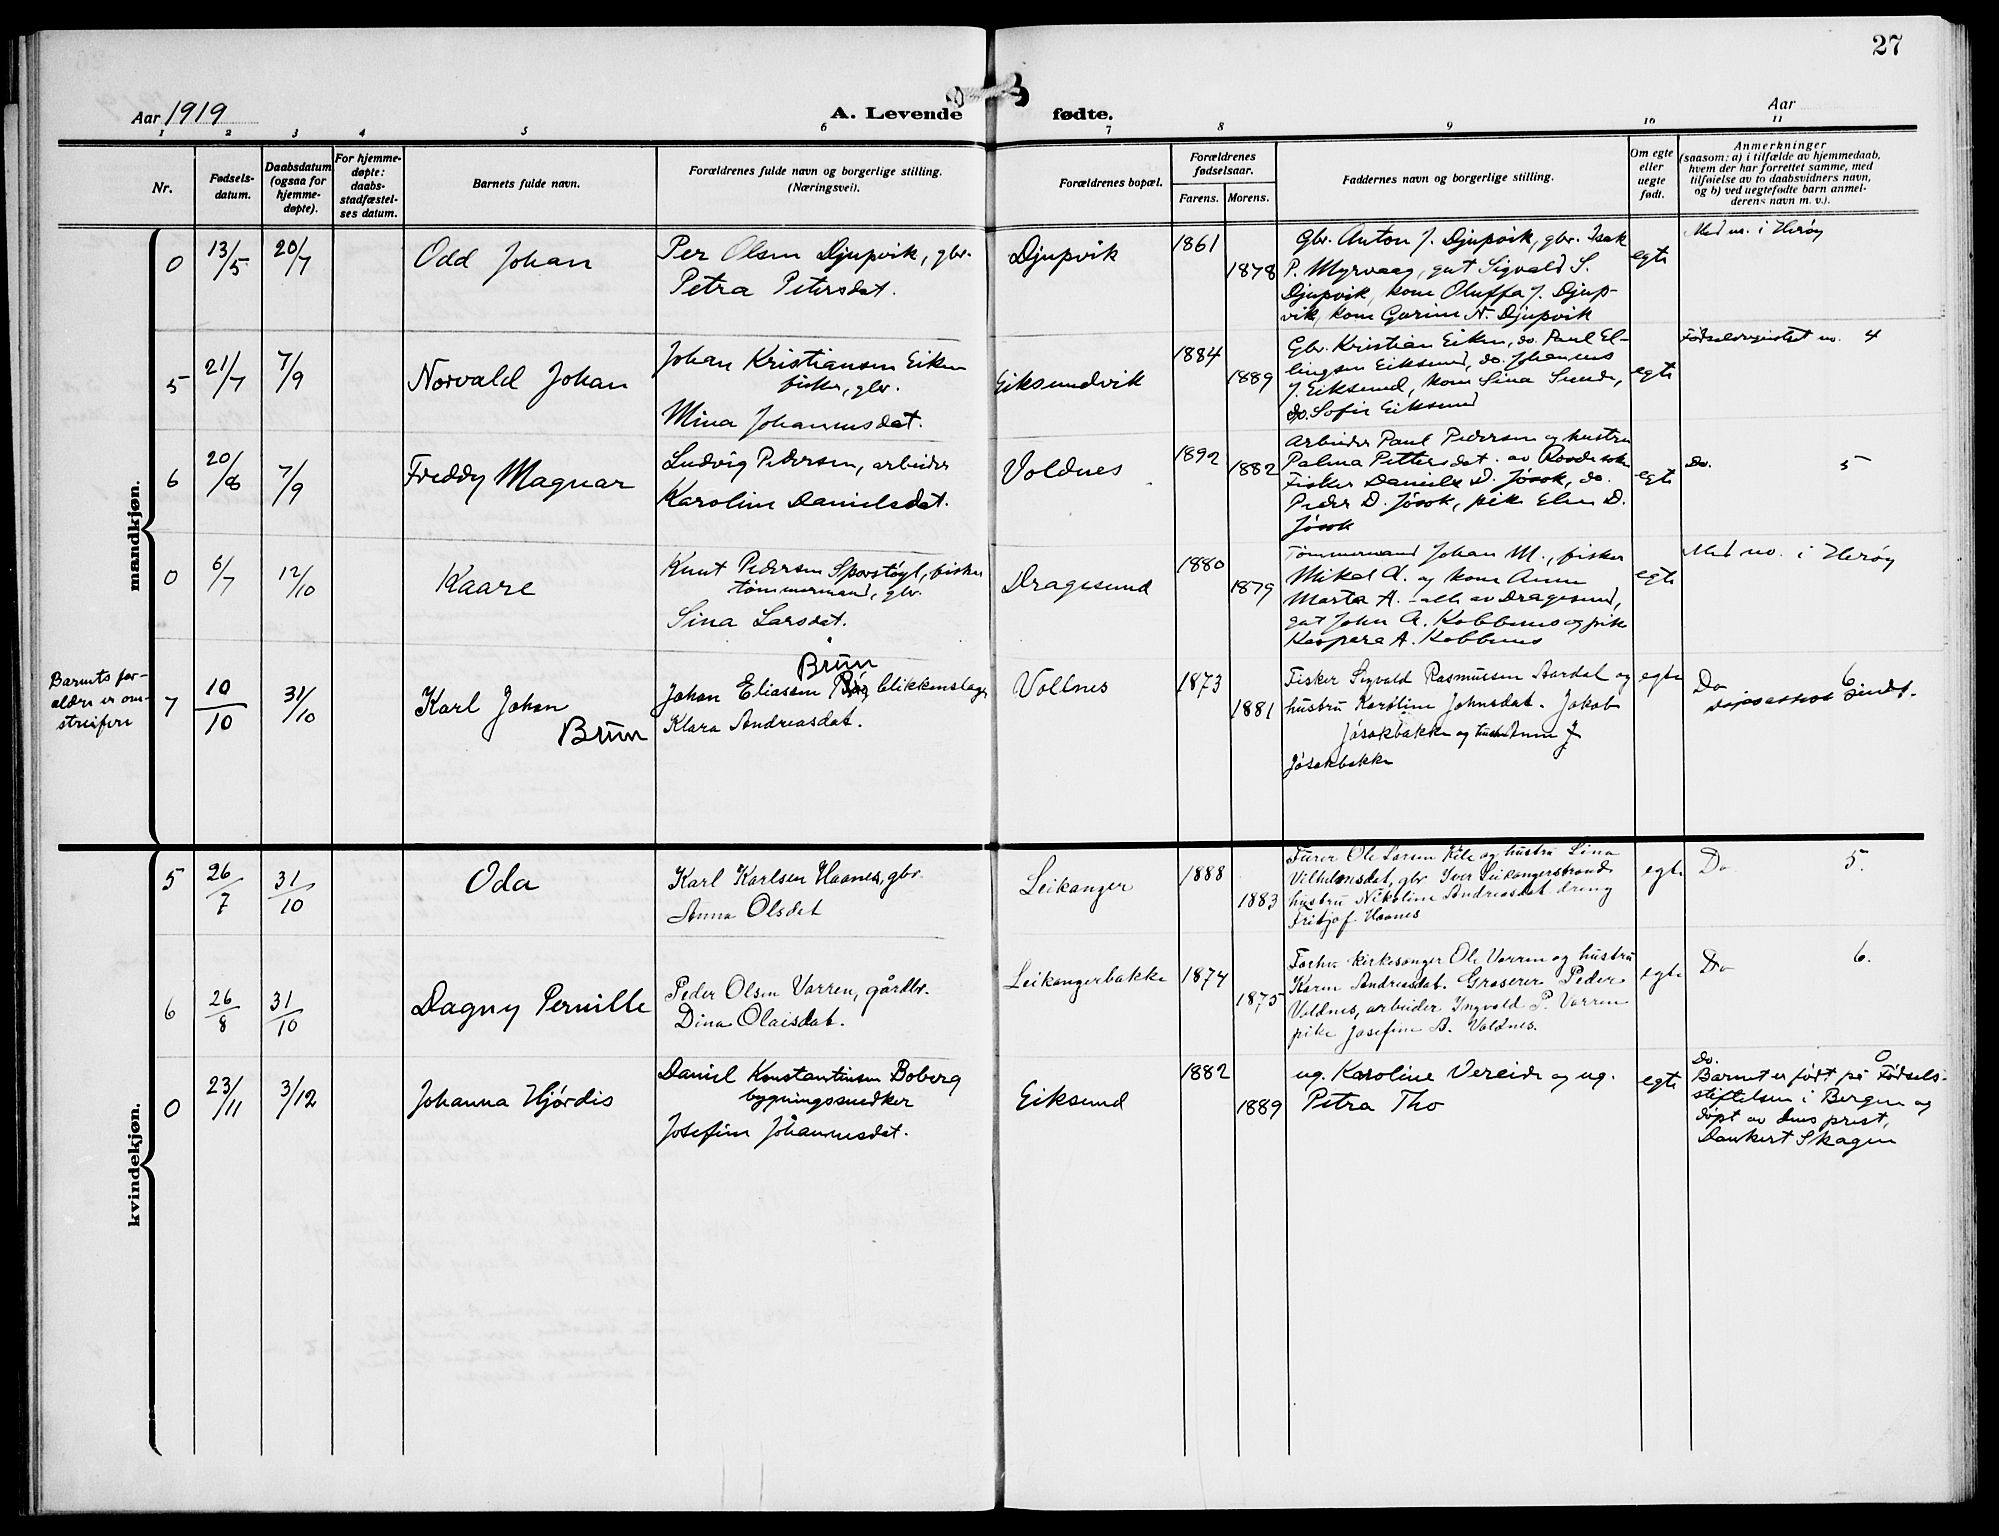 27
Aar 1919
A. Levende fødte.
Aar
1 2 3 4 5 6 7 8 9 10 11
Nr.
Fødsels-
datum.
Daabsdatum
(ogsaa for
hjemme-
døpte).
For hjemme-
døpte:
daabs-
stadfæstel-
ses datum.
Barnets fulde navn.
Forældrenes fulde navn og borgerlige stilling.
(Næringsvei).
Forældrenes bopæl.
Forældrenes
fødselsaar.
Farens. Morens.
Faddernes navn og borgerlige stilling.
Om egte
eller
uegte
født.
Anmerkninger
(saasom: a) i tilfælde av hjemmedaab,
hvem der har forrettet samme, med
tilføielse av to daabsvidners navn,
og b) ved uegtefødte barn anmel-
derens navn m. v.).
mandkjøn.
0
13/5
20/7
Odd Johan
Per Olsen Djupvik, gbr.
Petra Petersdat.
Djupvik
1861
1878
Gbr. Anton J. Djupvik, gbr. Isak
P. Myrvaag, gut Sigvald S.
Djupvik, kone Oluffa J. Djup-
vik, kone Gurine N. Djupvik
egte
Med no. i Herøy
5
21/7
7/9
Norvald Johan
Johan Kristiansen Eiken
fisker, gbr.
Mina Johannesdat.
Eiksundvik
1884
1889
Gbr. Kristian Eiken, do. Paul El-
lingsen Eiksund, do. Johannes
J. Eiksund, kone Sina Sunde,
do. Sofie Eiksund
egte
Fødselsregistret no. 4
6
20/8
7/9
Freddy Magnar
Ludvig Pedersen, arbeider
Karoline Danielsdat.
Voldnes
1892
1882
Arbeider Paul Pedersen og hustru
Palma Pettersdat. av
Fisker Daniels D. Jøsok, do.
Peder D. Jøsok, pike Elen D.
Jøsok
egte
Do. 5
0
6/7
12/10
Kaare
Knut Pedersen Sporstøyl, fisker
tømmermand, gbr.
Sina Larsdat.
Dragesund
1880
1879
Tømmermand Johan M., fisker
Mikal A. og kone Anne
Marta A. - alle av Dragesund,
gut John A. Kobbenes og pike
Kaspara A. Kobbenes
egte
Med no. i Herøy
Barnets for-
ældre er om-
streifere
7
10/10
31/10
Karl Johan
Brun
Brun
Johan Eliassen blikkenslager
Klara Andreasdat.
Vollnes
1873
1881
Fisker Sigvald Rasmussen Aardal og
hustru Karoline Johnsdat. Jakob
Jøsokbakke og hustru Anne J
Jøsokbakke
egte
Do 6
kvindekjøn.
5
26/7
31/10
Oda
Karl Karlsen Haanes, gbr.
Anna Olsdat
Leikanger
1888
1883
Furer Ole Larsen Kile og hustru Lina
Vilhelmsdat, gbr Iver Leikangerstrand
hustru Nikoline Andreasdat dreng
Fritjof Haanes
egte
Do 5.
6
26/8
31/10
Dagny Pernille
Peder Olsen Varren, gårdbr.
Dina Olaisdat.
Leikangerbakke
1874
1875
Forhv. kirkesanger Ole Varren og hustru
Karen Andreasdat. Groserer Peder
Voldnes, arbeider Ingvald P. Varren
pike Josefine A. Voldnes.
egte
Do 6.
0
23/11
3/12
Johanna Hjørdis
Daniel Konstantinsen Boberg
bygningssnedker
Josefine Johannesdat.
Eiksund
1882
1889
ug. Karoline Vereide og ug.
Petra Tho
egte
Do. 0
Barnet er født på Fødsels-
stiftelsen i Bergen og
døpt av dens prest,
Dankert Skagen